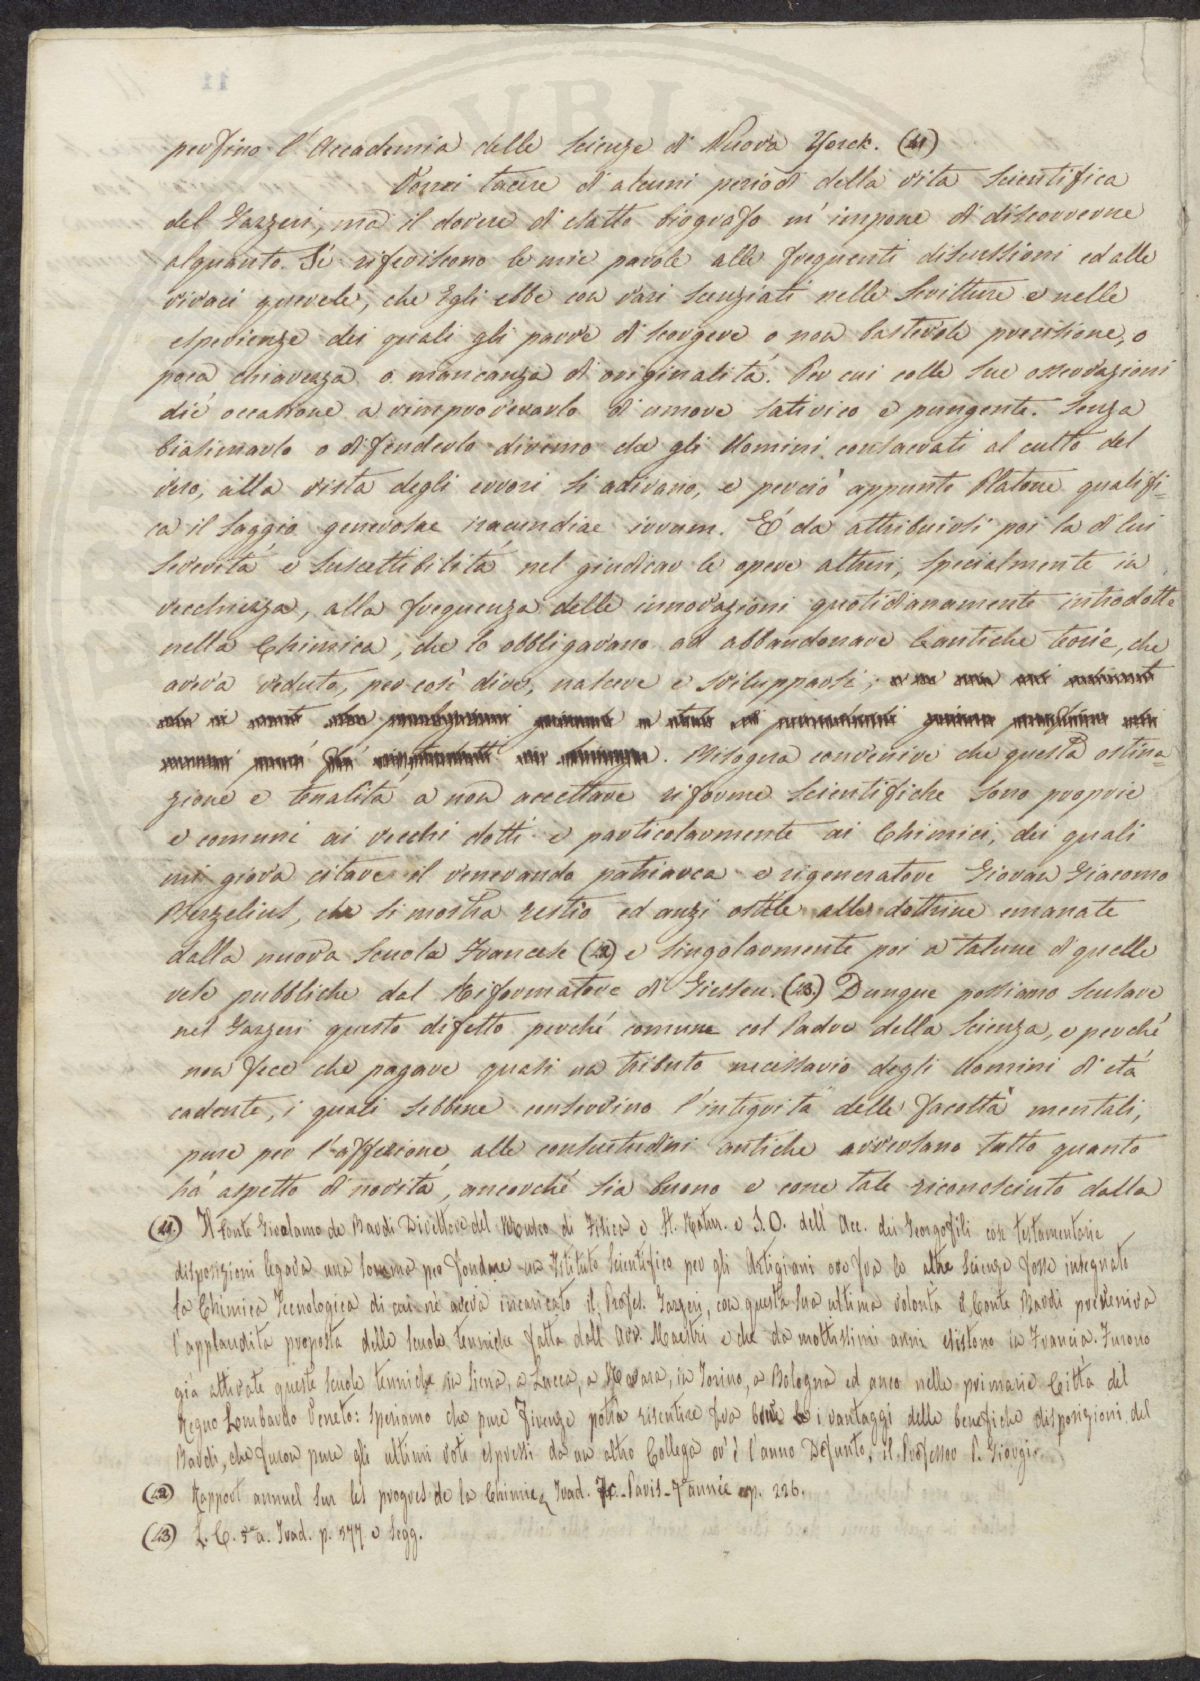 perfino l'Accademia delle Scienze di Nuova Yorck. (41)
Vorrei tacere di alcuni periodi della vita Scientifica
del Gazzeri, ma il dovere di esatto biografo m'impone di discorrerne
alquanto. Si riferiscono le mie parole alle frequenti discussioni ed alle
vivaci querele, che Egli ebbe con vari Scenziati nelle Scritture e nelle
esperienze dei quali gli parve di scorgere o non bastevole precisione, o
poca chiarezza o mancanza di originalità. Per cui colle Sue osservazioni
diè occasione a rimproverarlo di umore satirico e pungente. Senza
biasimarlo o difenderlo diremo che gli Uomini consacrati al culto del
vero, alla vista degli errori Si adirano, e perciò appunto Platone qualifi=
ca il Saggio generosae iracundiae irarum. È da attribuirsi poi la di lui
Severità e Suscettibilità nel giudicar le opere altrui, specialmente in
vecchiezza, alla frequenza delle innovazioni quotidianamente introdotte
nella Chimica, che lo obbligavano ad abbandonare l'antiche teorie, che
aveva veduto, per così dire, nascere e svilupparsi;
. Bisogna convenire che questa ostina=
zione e tenacità a non accettare riforme Scientifiche Sono proprie
e comuni ai vecchi dotti e particolarmente ai Chimici, dei quali
mi giova citare il venerando patriarca e rigeneratore Giovan Giacomo
Berzelius, che si mostra restio ed anzi ostile alle dottrine emanate
dalla nuova Scuola Francese (42) e Singolarmente poi a talune di quelle
rese pubbliche dal Riformatore di Giessen. (43.) Dunque possiamo Scusare
nel Gazzeri questo difetto perché comune col Padre della Scienza, e perché
non fece che pagare quasi un tributo necessario degli Uomini di età
cadente, i quali Sebbene conservino l'integrità delle facoltà mentali,
pure per l'affezione alle consuetudini antiche avversano tutto quanto
ha aspetto di novità, ancorché Sia buono e come tale riconosciuto dalla
(41.) Il Conte Girolamo de Bardi Direttore del Museo di Fisica e St. Natur. e S.O. dell'Acc. dei Georgofili con testamentarie
disposizioni legava una Somma per fondare un Istituto Scientifico per gli Artigiani ove fra le altre Scienze fosse insegnato
la Chimica Tecnologica di cui nè aveva incaricato il Profes. Gazzeri, con questa Sua ultima volontà il Conte Bardi preveniva
l'applaudita proposta delle Scuole tenniche fatta dall'Avv. Maestri e che da moltissimi anni esistono in Francia. Furono
già attivate queste Scuole tenniche in Siena, a Lucca, a Novara, in Torino, a Bologna ed anco nelle primarie Città del
Regno Lombardo Veneto: Speriamo che pure Firenze potrà risentire fra breve i vantaggi delle benefiche disposizioni del
Bardi, che furon pure gli ultimi voti espressi da un altro Collega ov'è l'anno Defunto, il Professor P. Giorgi
(42) Rapport annuel Sur les progres de la Chimie, Trad. Fr. - Paris - 7e année p. 226.
(43) L. C. 5e a. Trad. p. 277 e Segg.